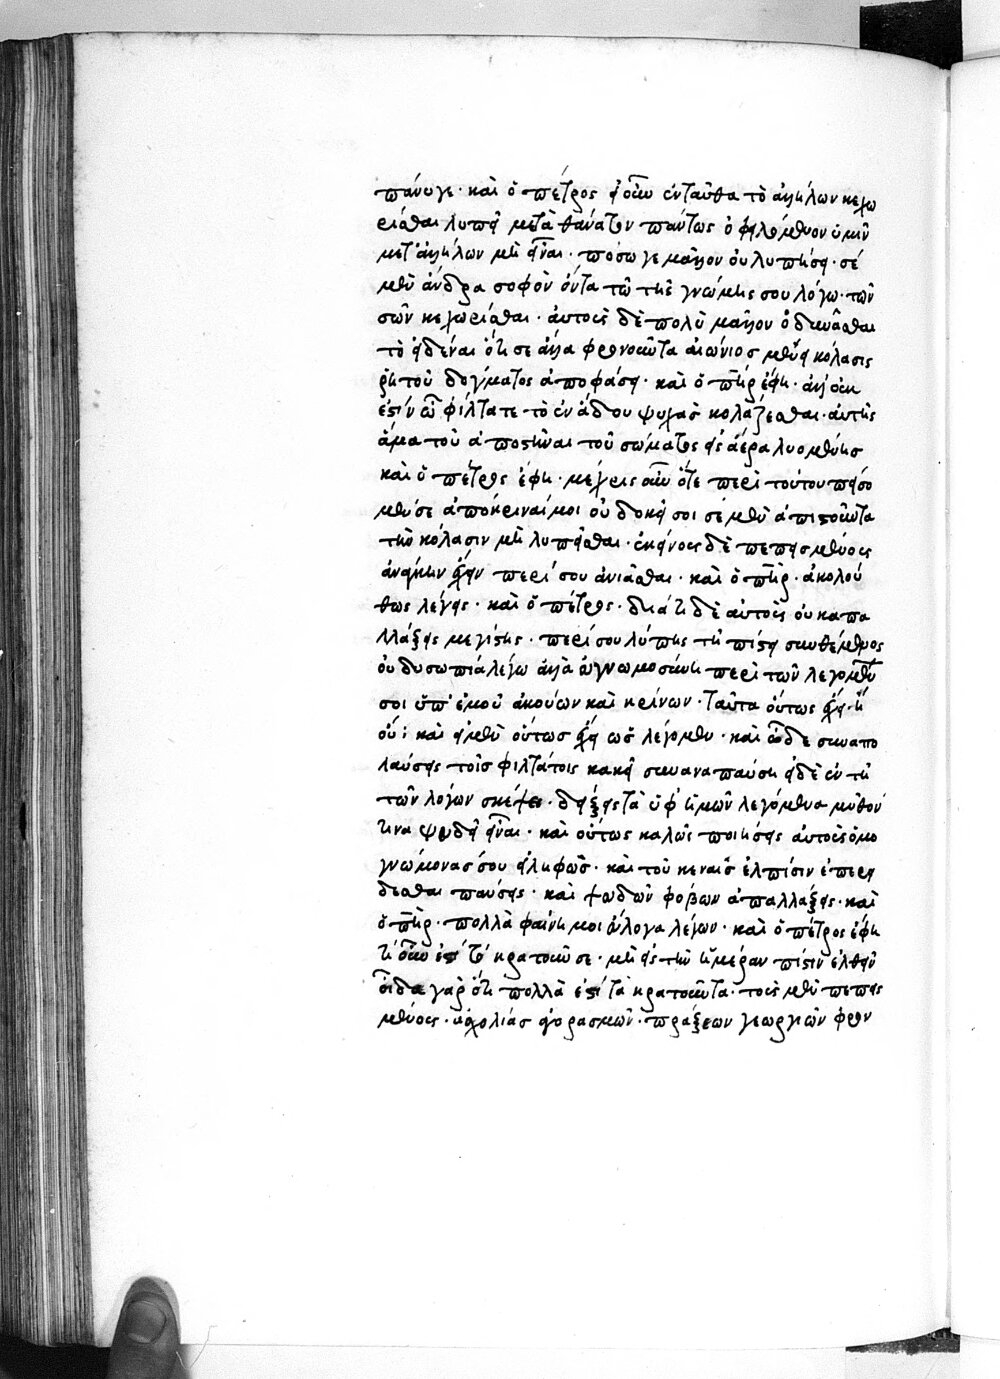 πάνυγε· καὶ ὁ πέτρος εἰ οὖν ἐνταῦθα τὸ ἀλλήλων κεχω
ρίσθαι λυπεῖ μετὰ θάνατον πάντως ὁ φιλούμενον ὑμῖν
μετ' ἀλλήλων μὴ εἶναι· πόσω γε μᾶλλον οὐ λυπήσει· σὲ
μὲν ἄνδρα σοφὸν ὄντα τῶ τῆς γνώμης σου λόγω· τῶν
σῶν κεχωρίσθαι· αὐτοῖς δὲ πολὺ μᾶλλον ὀδυνᾶσθαι
τὸ εἰδέναι ὅτι σε ἄλλα φρονοῦντα αἰώνιος μένει κόλασις
ῥητοῦ δογμάτος ἀποφάσει· καὶ ὁ πηρ ἔφη· ἀλλ' οὐκ
ἔστιν ὦ φίλτατε τὸ ἐν ἅδου ψυχὰς κολάζεσθαι· αὐτῆς
ἅμα τοῦ ἀποστῆναι τοῦ σώματος εἰς ἀέρα λυομένης
καὶ ὁ πέτρος ἔφη· μέχρις οὖν ὅτε περὶ τούτου πείσο
μέν σε ἀπόκριναί μοι οὐ δοκεῖ σοι σὲ μὲν ἀπιστοῦντα
τὴν κόλασιν μὴ λυπεῖσθαι· ἐκείνοις δὲ πεπεισμένοις
ἀνάγκην ἔχειν περί σου ἀνιᾶσθαι· καὶ ὁ πηρ· ἀκολού
θως λέγεις· καὶ ὁ πέτρος· διὰ τί δὲ αὐτοῖς οὐκ ἀπα
λλάξεις μεγίστης· περί σου λύπης τῆ πίστει συνθέμενος
οὐ δυσωπία λέγω ἀλλὰ εὐγνωμοσύνη περὶ τῶν λεγομένων
σοι ὑπ' ἐμοῦ ἀκούων καὶ κρίνων· ταῦτα οὕτως ἔχει· ἢ
οὔ· καὶ εἰ μὲν οὕτως ἔχει ὡς λέγομεν· καὶ ὧδε συναπο
λαύσεις τοῖς φιλτάτοις κακεῖ συναναπαύση εἰ δὲ ἐν τῆ
τῶν λόγων σκέψει· δείξεις τὰ ὑφ' ἡμῶν λεγόμενα μῦθόν
τινα ψευδῆ εἶναι· καὶ οὕτως καλῶς ποιήσεις αὐτοῖς ὁμο
γνώμονας σου εἰληφώς· καὶ τοῦ κεναῖς ἐλπίσιν ἐπερεί
δεσθαι παύσεις· καὶ ψευδῶν φόβων ἀπαλλάξεις· καὶ
ὁ πηρ· πολλὰ φαίνη μοι εὔλογα λέγων· καὶ ὁ πέτρος ἔφη
τί οὖν ἐστὶ τὸ κρατοῦν σε· μὴ εἰς τὴν ἡμέραν πίστιν ἐλθεῖν
οἶδα γὰρ ὅτι πολλὰ ἐστὶ τὰ κρατοῦντα· τοῖς μὲν πεπεισ
μένοις· ἀσχολίας ἀγορασμῶν· πράξεων γεωργιῶν φρον